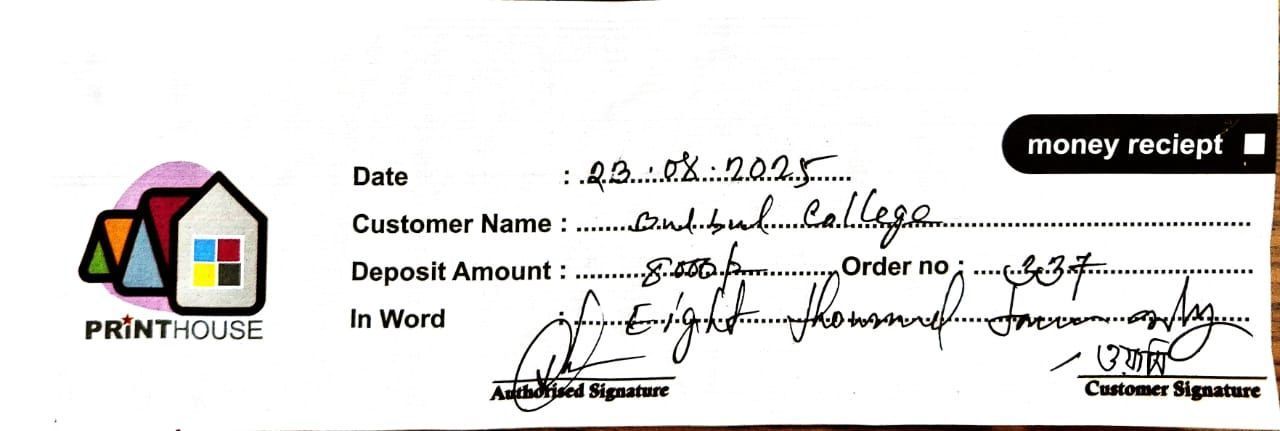 money reciept
Date : 23:08:2025
Customer Name : Bulbul College
Deposit Amount : 8000/- Order no : 337
In Word : Eight thousand only
PRINTHOUSE
Authorised Signature
ওয়াসি
Customer Signature